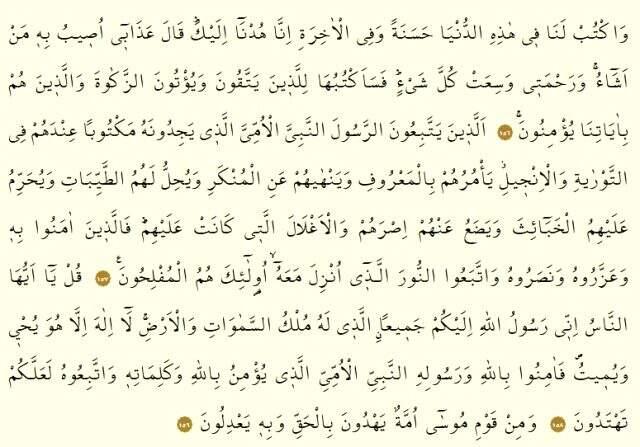 وَاكْتُبْ لَنَا فٖي هٰذِهِ الدُّنْيَا حَسَنَةً وَفِي الْاٰخِرَةِ اِنَّا هُدْنَٓا اِلَيْكَؕ قَالَ عَذَابٖٓي اُصٖيبُ بِهٖ مَنْ
اَشَٓاءُۚ وَرَحْمَتٖي وَسِعَتْ كُلَّ شَيْءٍؕ فَسَاَكْتُبُهَا لِلَّذٖينَ يَتَّقُونَ وَيُؤْتُونَ الزَّكٰوةَ وَالَّذٖينَ هُمْ
بِاٰيَاتِنَا يُؤْمِنُونَۚ ﴿١٥٦﴾ اَلَّذٖينَ يَتَّبِعُونَ الرَّسُولَ النَّبِيَّ الْاُمِّيَّ الَّذٖي يَجِدُونَهُ مَكْتُوباً عِنْدَهُمْ فِي
التَّوْرٰيةِ وَالْاِنْجٖيلِؗ يَاْمُرُهُمْ بِالْمَعْرُوفِ وَيَنْهٰيهُمْ عَنِ الْمُنْكَرِ وَيُحِلُّ لَهُمُ الطَّيِّبَاتِ وَيُحَرِّمُ
عَلَيْهِمُ الْخَبَٓائِثَ وَيَضَعُ عَنْهُمْ اِصْرَهُمْ وَالْاَغْلَالَ الَّتٖي كَانَتْ عَلَيْهِمْؕ فَالَّذٖينَ اٰمَنُوا بِهٖ
وَعَزَّرُوهُ وَنَصَرُوهُ وَاتَّبَعُوا النُّورَ الَّـذٖٓي اُنْزِلَ مَعَهُٓۙ اُو۬لٰٓئِكَ هُمُ الْمُفْلِحُونَۚ ﴿١٥٧﴾ قُلْ يَٓا اَيُّهَا
النَّاسُ اِنّٖي رَسُولُ اللّٰهِ اِلَيْكُمْ جَمٖيعاًۨ الَّذٖي لَهُ مُلْكُ السَّمٰوَاتِ وَالْاَرْضِۚ لَٓا اِلٰهَ اِلَّا هُوَ يُحْيٖ
وَيُمٖيتُࣕ فَاٰمِنُوا بِاللّٰهِ وَرَسُولِهِ النَّبِيِّ الْاُمِّيِّ الَّذٖي يُؤْمِنُ بِاللّٰهِ وَكَلِمَاتِهٖ وَاتَّبِعُوهُ لَعَلَّكُمْ
تَهْتَدُونَ ﴿١٥٨﴾ وَمِنْ قَوْمِ مُوسٰٓى اُمَّةٌ يَهْدُونَ بِالْحَقِّ وَبِهٖ يَعْدِلُونَ ﴿١٥٩﴾